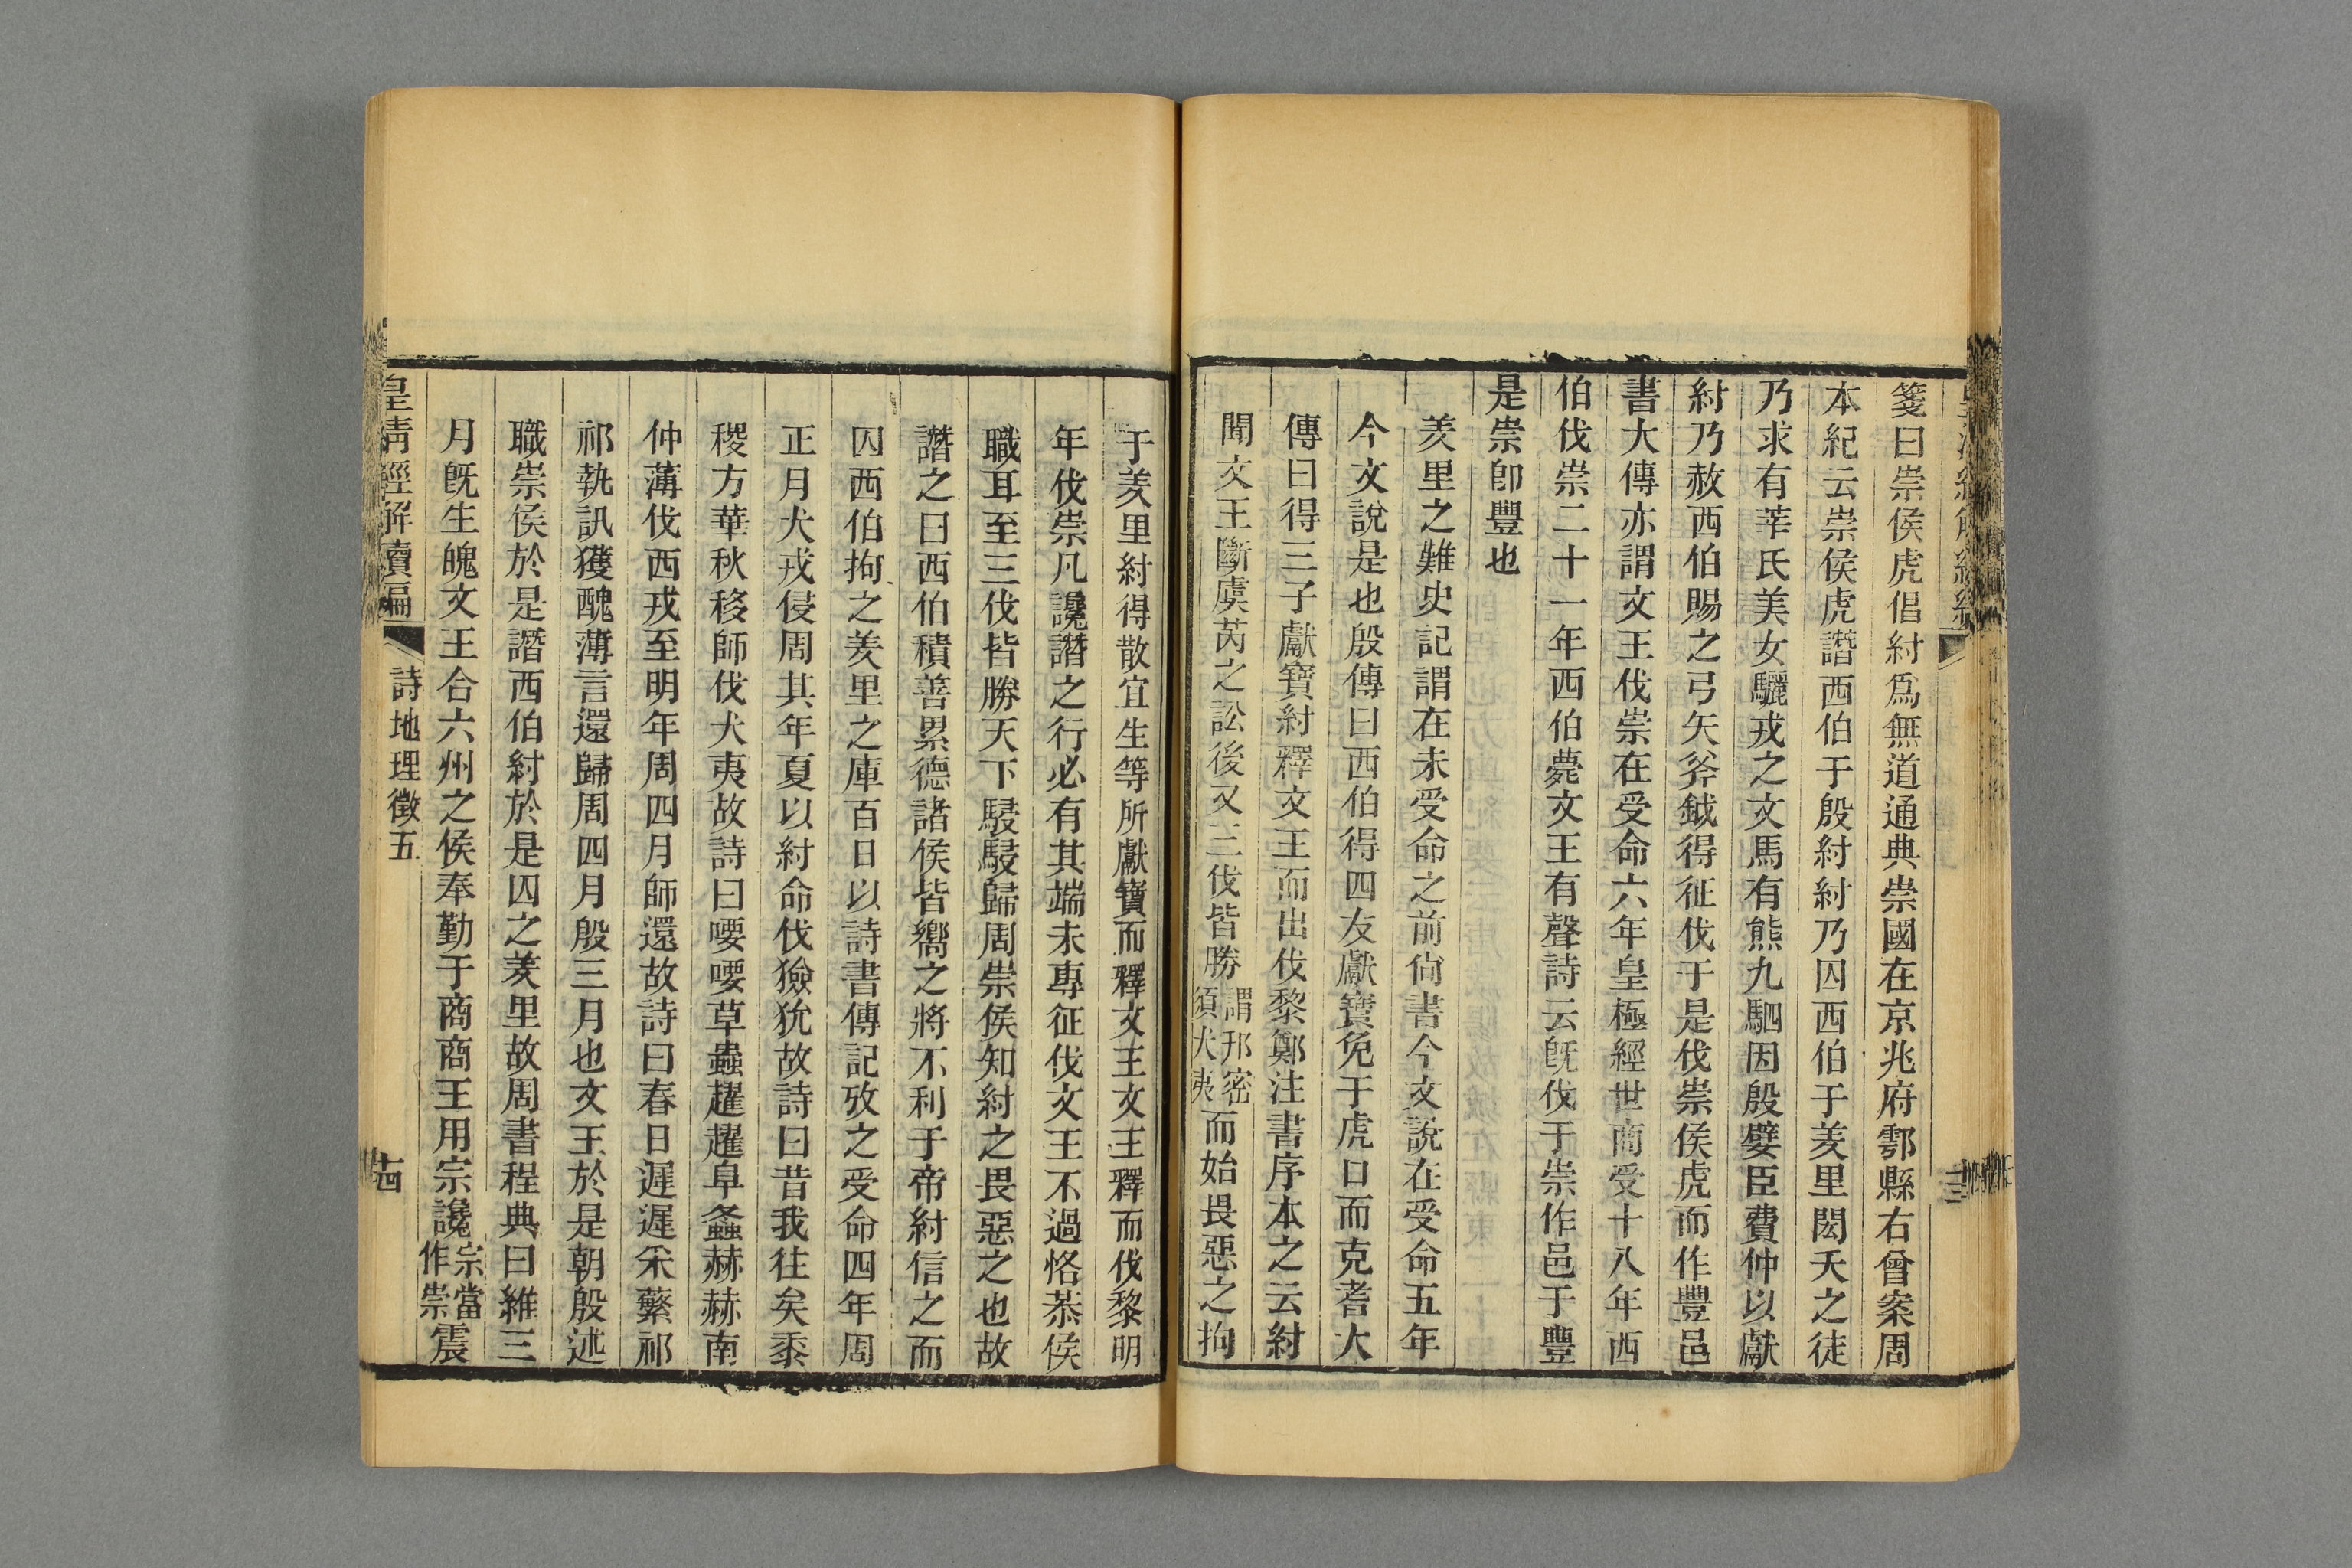 箋曰崇侯虎倡紂爲無道通典崇國在京兆府鄠縣右曾案周
本紀云崇侯虎譖西伯于殷紂紂乃囚西伯于羑里閎夭之徒
乃求有莘氏美女驪戎之文馬有熊九駟因殷嬖臣費仲以獻
紂乃赦西伯賜之弓矢斧鉞得征伐于是伐崇侯虎而作豐邑
書大傳亦謂文王伐崇在受命六年皇極經世商受十八年西
伯伐崇二十一年西伯薨文王有聲詩云旣伐于崇作邑于豐
是崇卽豐也
羑里之難史記謂在未受命之前尙書今文說在受命五年
今文說是也殷傳曰西伯得四友獻寶免于虎口而克耆大
傳曰得三子獻寶紂釋文王而出伐黎鄭注書序本之云紂
聞文王斷虞芮之訟後又三伐皆勝謂邘密須犬夷而始畏惡之拘
于羑里紂得散宜生等所獻寶而釋文王文王釋而伐黎明
年伐崇凡讒譖之行必有其端未專征伐文王不過恪恭侯
職耳至三伐皆勝天下駸駸歸周崇侯知紂之畏惡之也故
譖之曰西伯積善累德諸侯皆嚮之將不利于帝紂信之而
囚西伯拘之羑里之庫百日以詩書傳記攷之受命四年周
正月犬戎侵周其年夏以紂命伐獫狁故詩曰昔我往矣黍
稷方華秋移師伐犬夷故詩曰喓喓草蟲趯趯阜螽赫赫南
仲薄伐西戎至明年周四月師還故詩曰春日遲遲采蘩祁
祁執訊獲醜薄言還歸周四月殷三月也文王於是朝殷述
職崇侯於是譖西伯紂於是囚之羑里故周書程典曰維三
月旣生魄文王合六州之侯奉勤于商商王用宗讒宗當作崇震
皇淸經解續編
詩地理徵五
十四